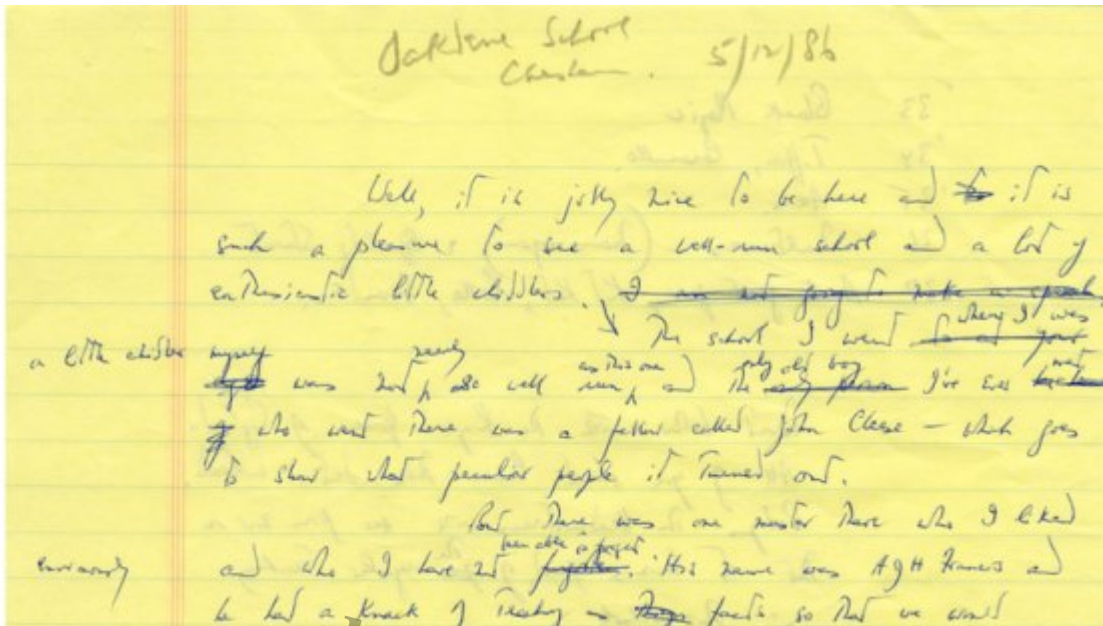 Oaklane School
Chesham. 5/12/86
Well, it is jolly nice to be here and it is
such a pleasure to see a well-run school and a lot of
enthusiastic little childers. I am not going to make a speech,
The school I went when I was
a little childer myself was not nearly so well run as this one, and the only old boy I've ever met
who went there was a fellow called John Cleese – which goes
to show what peculiar people it turned out.
But there was one master there who I liked
enormously and who I have not been able to forget. His name was AGH Francis and
he had a knack of teaching facts so that we would